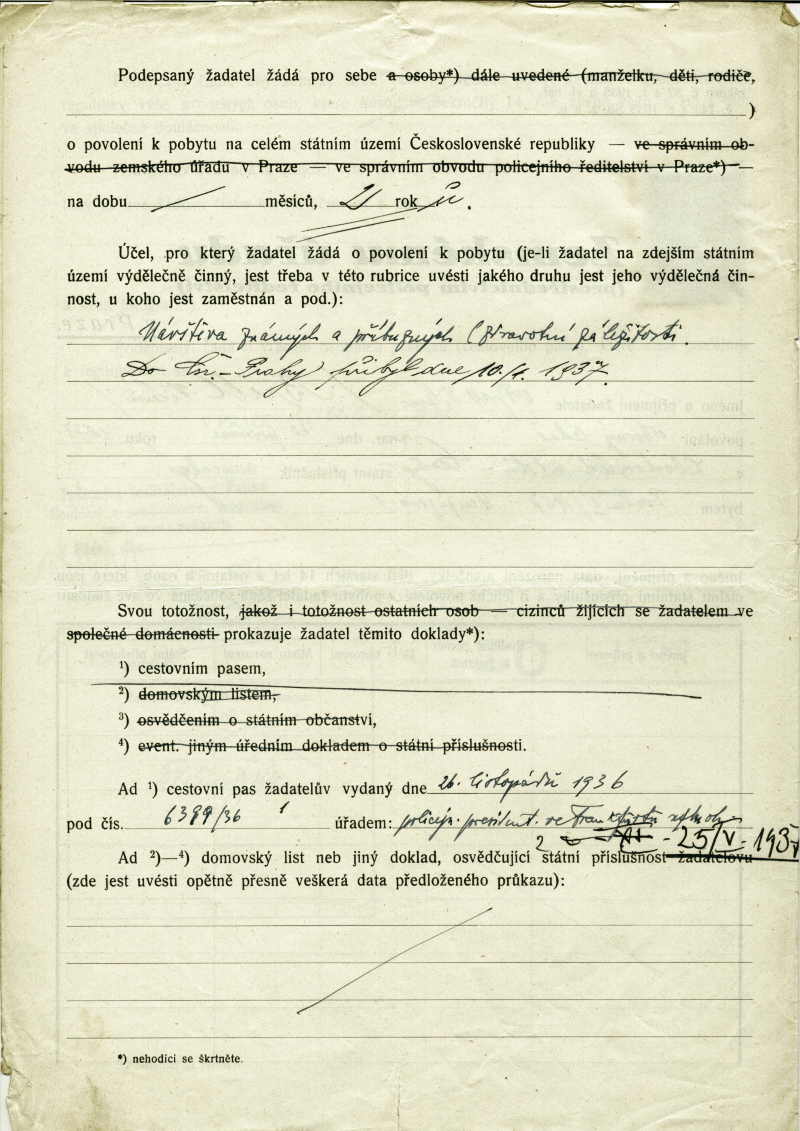 Podepsaný žadatel žádá pro sebe a osoby*) dále uvedené (manželku, děti, rodiče,
)
o povolení k pobytu na celém státním území Československé republiky — ve správním ob-
vodu zemského úřadu v Praze — ve správním obvodu policejního ředitelství v Praze*) —
na dobu měsíců, 2 rok ů.
Účel, pro který žadatel žádá o povolení k pobytu (je-li žadatel na zdejším státním
území výdělečně činný, jest třeba v této rubrice uvésti jakého druhu jest jeho výdělečná čin-
nost, u koho jest zaměstnán a pod.):
Návštěva známých a příbuzných (zdravotní záležitosti.
Do Prahy přibyl dne 10./1. 1937.
Svou totožnost, jakož i totožnost ostatních osob — cizinců žijících se žadatelem ve
společné domácnosti prokazuje žadatel těmito doklady*):
¹) cestovním pasem,
²) domovským listem,
³) osvědčením o státním občanství,
⁴) event. jiným úředním dokladem o státní příslušnosti.
Ad ¹) cestovní pas žadatelův vydaný dne 26. listopadu 1936
pod čís. 6399/36 úřadem: policejn. president. ve
2 - 25/V. 1937
Ad ²)—⁴) domovský list neb jiný doklad, osvědčující státní příslušnost žadatelovu
(zde jest uvésti opětně přesně veškerá data předloženého průkazu):
*) nehodící se škrtněte.